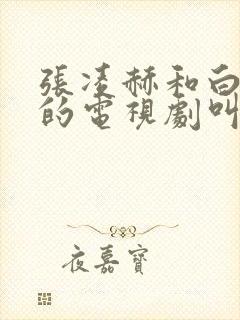 張凌赫和白
的電視劇叫
夜嘉寶